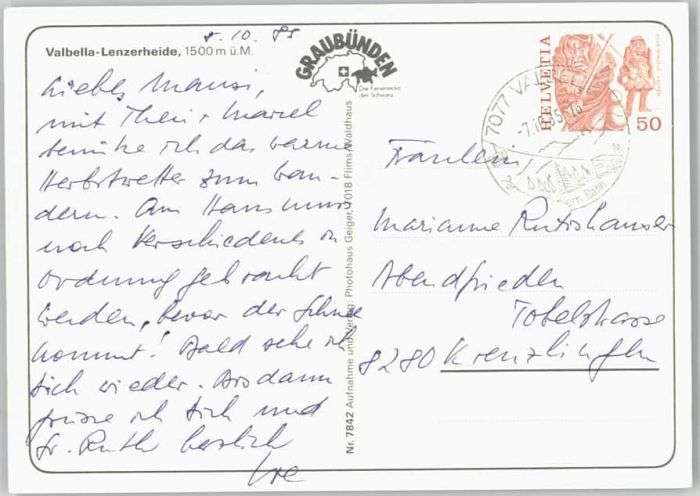 8.10.85
Valbella-Lenzerheide, 1500 m ü.M.
GRAUBÜNDEN
Die Ferienecke
der Schweiz
Liebes Mausi,
mit Theri + Marcel
benütze ich das warme
Herbstwetter zum Wan-
dern. Am Haus muss
noch Verschiedenes in
Ordnung gebracht
werden, bevor der Schnee
kommt! Bald sehe ich
Dich wieder. Bis dann
grüsse ich Dich und
Sr. Ruth herzlich
Nr. 7842 Aufnahme und Verlag: Photohaus Geiger, 7018 Flims/Waldhaus
HELVETIA
50
7077 VALBELLA
Fräulein
Marianne Rutishauser
Abendfrieden
Tobelstrasse
8280 Kreuzlingen